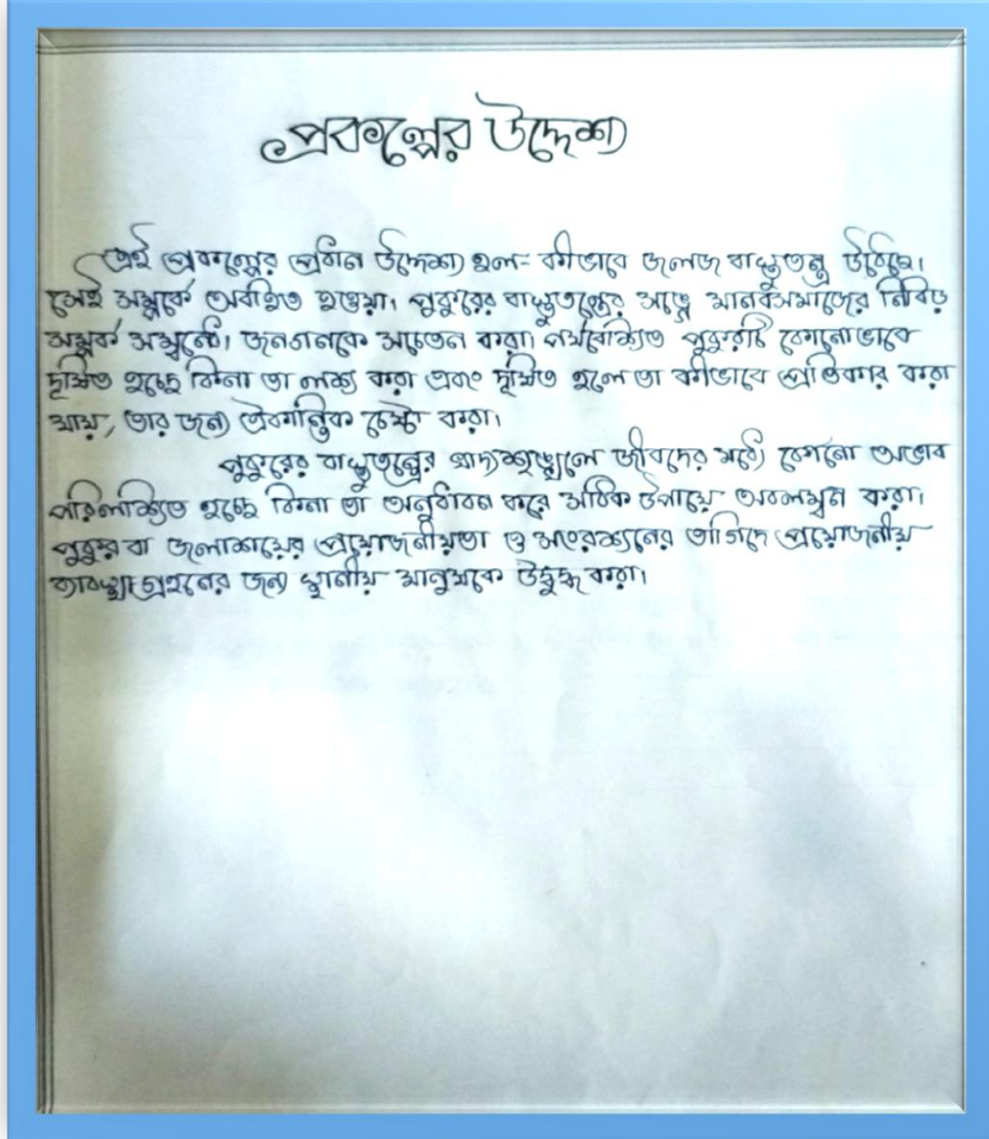 প্রকল্পের উদ্দেশ্য
এই প্রকল্পের প্রধান উদ্দেশ্য হল- কীভাবে জলজ বাস্তুতন্ত্র
সেই সম্পর্কে অবহিত হওয়া। পুকুরের বাস্তুতন্ত্রের সঙ্গে মানবসমাজের নিবিড়
সম্পর্ক সম্বন্ধে। জনগনকে সচেতন করা। পর্যবেক্ষিত পুকুরটি কোনোভাবে
দূষিত হচ্ছে কিনা তা লক্ষ্য করা এবং দূষিত হলে তা কীভাবে প্রতিকার করা
যায়, তার জন্য ঐকান্তিক চেষ্টা করা।
পুকুরের বাস্তুতন্ত্রের খাদ্যশৃঙ্খলে জীবদের মধ্যে কোনো অভাব
পরিলক্ষিত হচ্ছে কিনা তা অনুধাবন করে সঠিক উপায়ে অবলম্বন করা।
পুকুর বা জলাশয়ের প্রয়োজনীয়তা ও সংরক্ষনের তাগিদে প্রয়োজনীয়
ব্যাবস্থা গ্রহনের জন্য স্থানীয় মানুষকে উদ্বুদ্ধ করা।